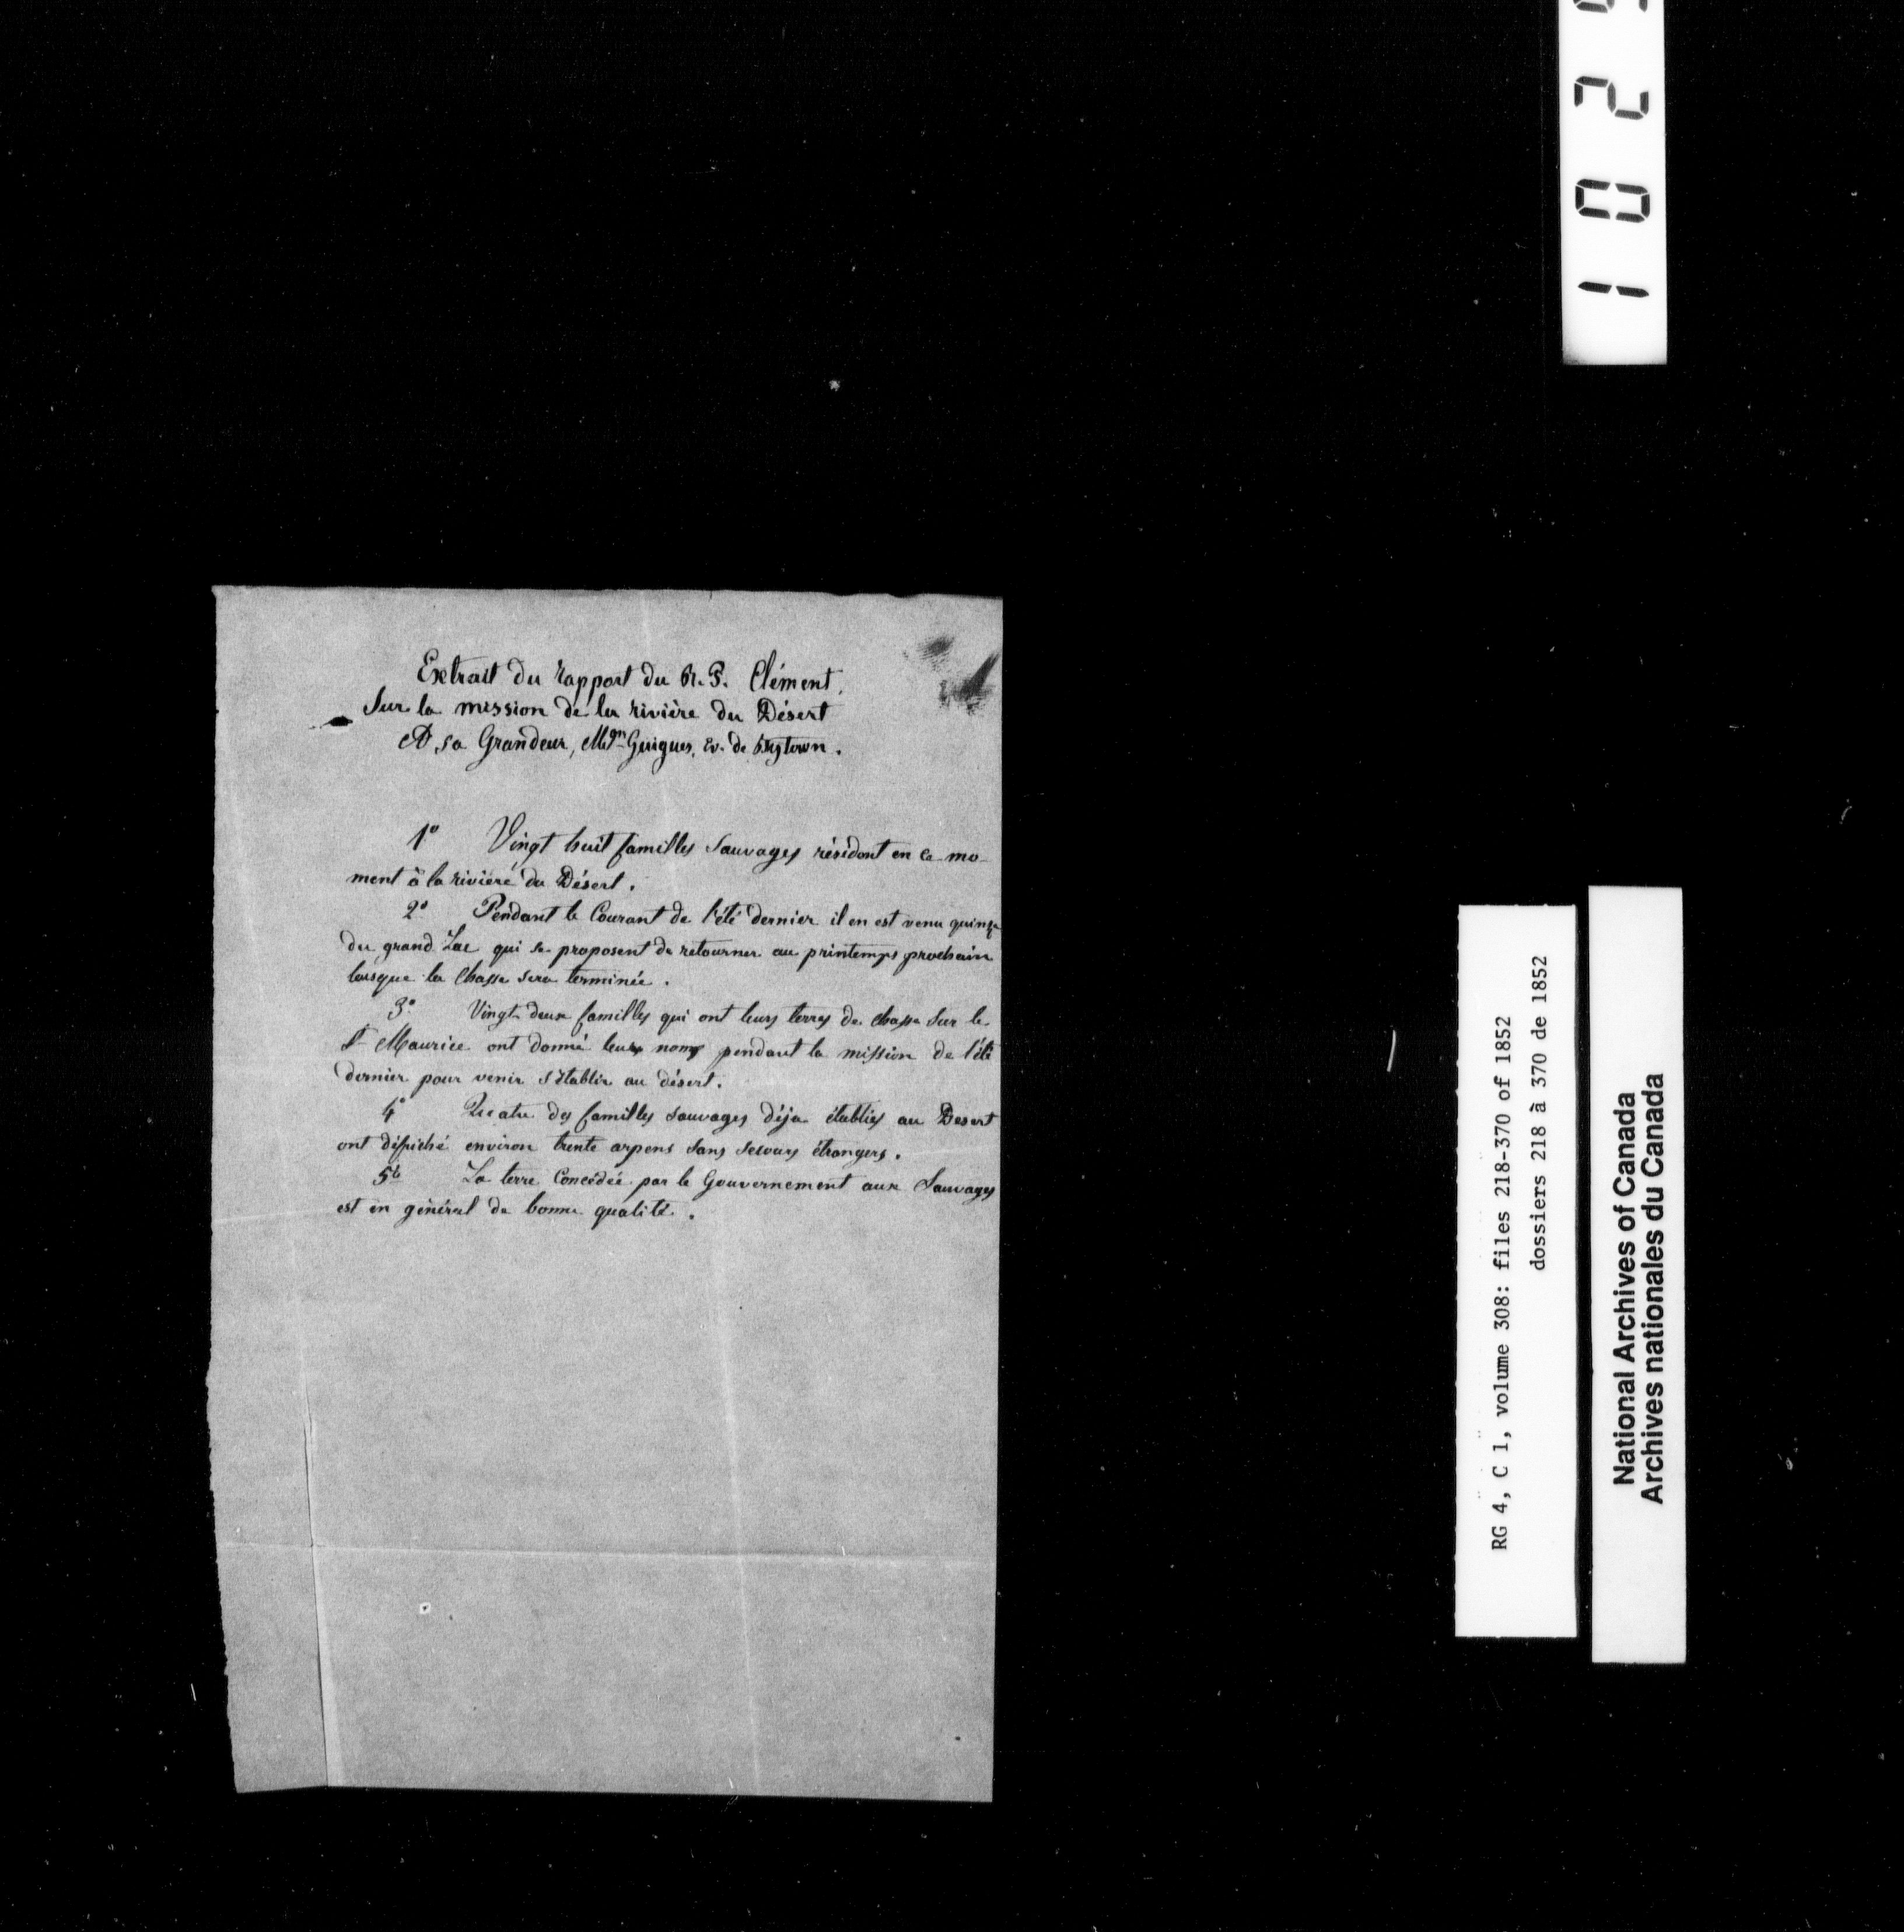 Extrait du rapport du R. P. Clément,
Sur la mission de la rivière du Désert
A sa Grandeur, Mgr Guigues, Ev. de Bytown.
1o Vingt huit familles Sauvages résident en ce mo-
ment à la rivière du Désert.
2o Pendant le Courant de l'été dernier il en est venu quinze
du grand Lac qui se proposent de retourner au printemps prochain
lorsque la Chasse sera terminée.
3o Vingt deux familles qui ont leurs terres de chasse sur le
St Maurice ont donné leurs noms pendant la mission de l'été
dernier pour venir s'établir au désert.
4o Quatre des familles sauvages déja établies au Desert
ont défriché environ trente arpens sans secours étrangers.
5o La terre Concédée par le Gouvernement aux Sauvages
est en général de bonne qualité.
RG 4, C 1, volume 308: files 218-370 of 1852
dossiers 218 à 370 de 1852
National Archives of Canada
Archives nationales du Canada
1 0 2